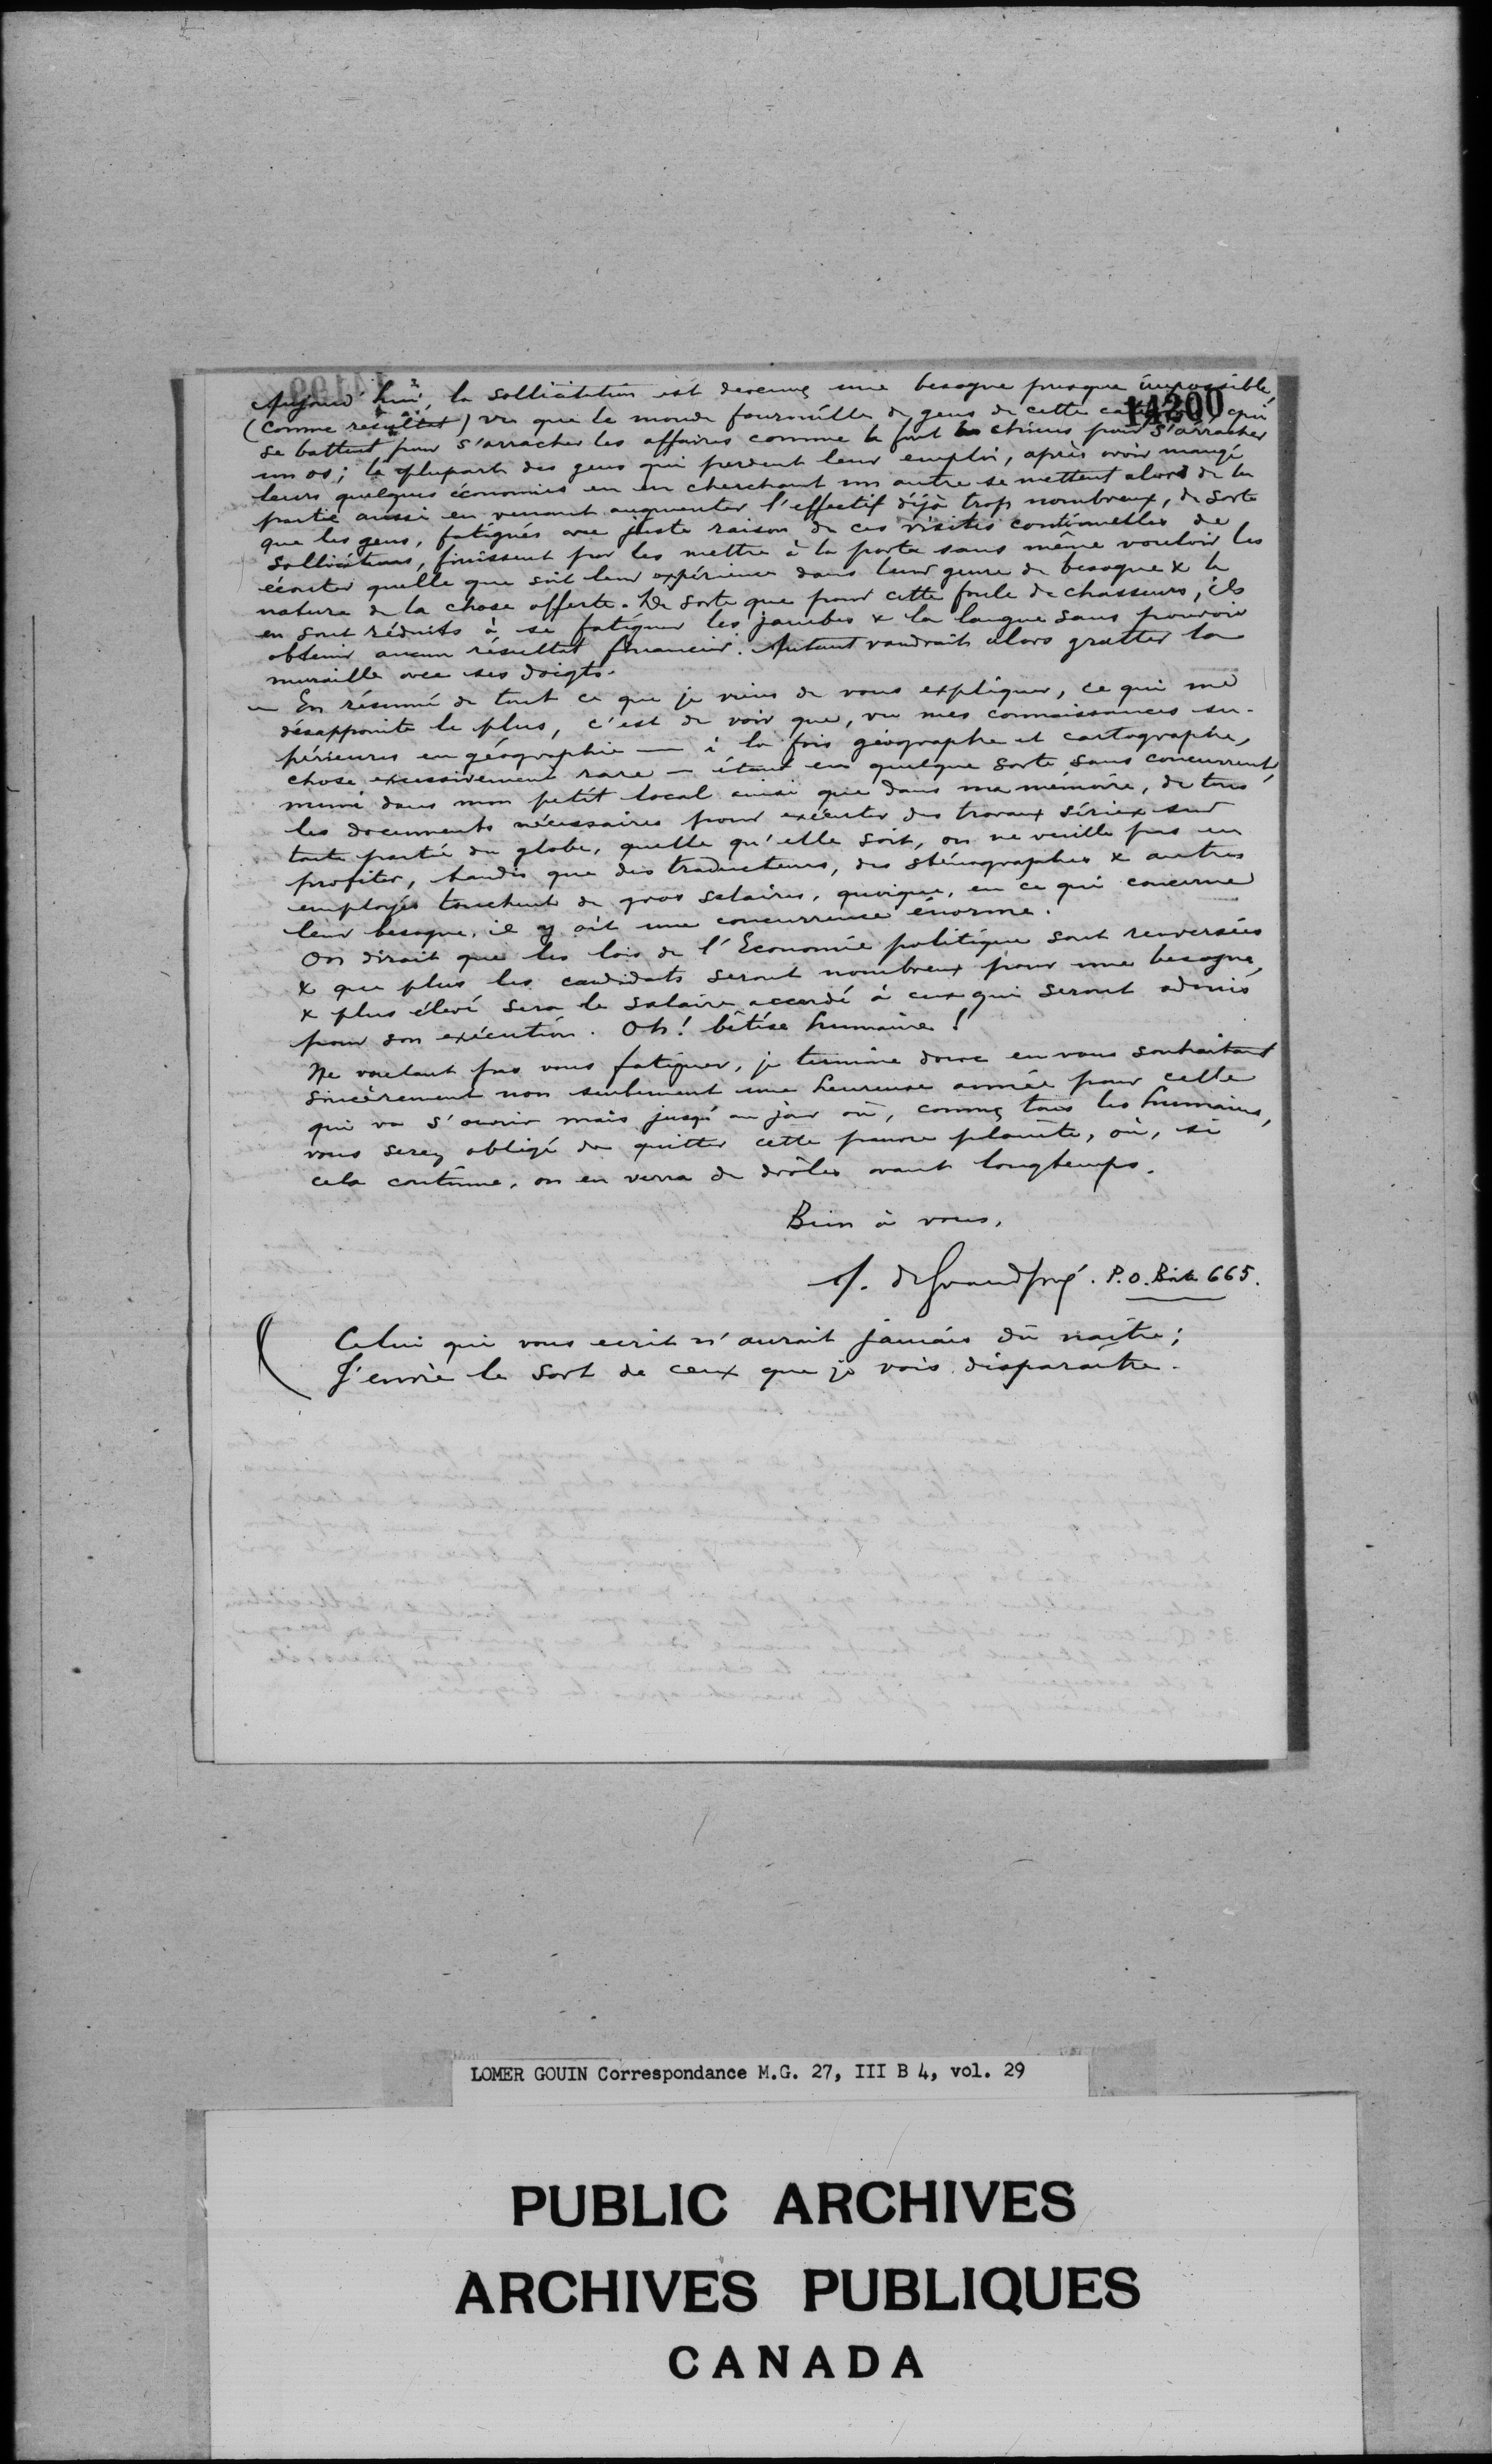 14200
Aujourd'hui, la sollicitation est devenue une besogne presque impossible,
(comme résultat) vu que le monde fourmille de gens de cette qui
se battent pour s'arracher les affaires comme le font les chiens pour s'arracher
un os; la plupart des gens qui perdent leur emploi, après avoir mangé
leurs quelques économies en en cherchant un autre se mettent alors de la
partie aussi en venant augmenter l'effectif déjà trop nombreux, de sorte
que les gens, fatigués avec juste raison de ces visites continuelles de
solliciteurs, finissent par les mettre à la porte sans même vouloir les
écouter quelle que soit leur expérience dans leur genre de besogne & la
nature de la chose offerte. De sorte que pour cette foule de chasseurs, ils
en sont réduits à se fatiguer les jambes & la langue sans pouvoir
obtenir aucun résultat financier. Autant vaudrait alors gratter la
muraille avec ses doigts.
— En résumé de tout ce que je viens de vous expliquer, ce qui me
désappointe le plus, c'est de voir que, vu mes connaissances su-
périeures en géographie — à la fois géographe et cartographe,
chose excessivement rare — étant en quelque sorte sans concurrent,
muni dans mon petit local ainsi que dans ma mémoire, de tous
les documents nécessaires pour exécuter des travaux sérieux sur
toute partie du globe, quelle qu'elle soit, on ne veuille pas en
profiter, tandis que des traducteurs, des sténographes & autres
employés touchent de gros salaires, quoique, en ce qui concerne
leur besogne, il y ait une concurrence énorme.
On dirait que les lois de l'Economie politique sont renversées
& que plus les candidats seront nombreux pour une besogne,
& plus élevé sera le salaire accordé à ceux qui seront admis
pour son exécution. Oh! bêtise humaine!
Ne voulant pas vous fatiguer, je termine donc en vous souhaitant
sincèrement non seulement une heureuse année pour celle
qui va s'ouvrir mais jusqu'au jour où, comme tous les humains,
vous serez obligé de quitter cette pauvre planète, où, si
cela continue, on en verra de drôles avant longtemps.
Bien à vous,
de Grandpré. P.O. Boite 665.
Celui qui vous ecrit n'aurait jamais dû naitre;
J'envie le sort de ceux que je vois disparaitre.
LOMER GOUIN Correspondance M.G. 27, III B 4, vol. 29
PUBLIC ARCHIVES
ARCHIVES PUBLIQUES
CANADA